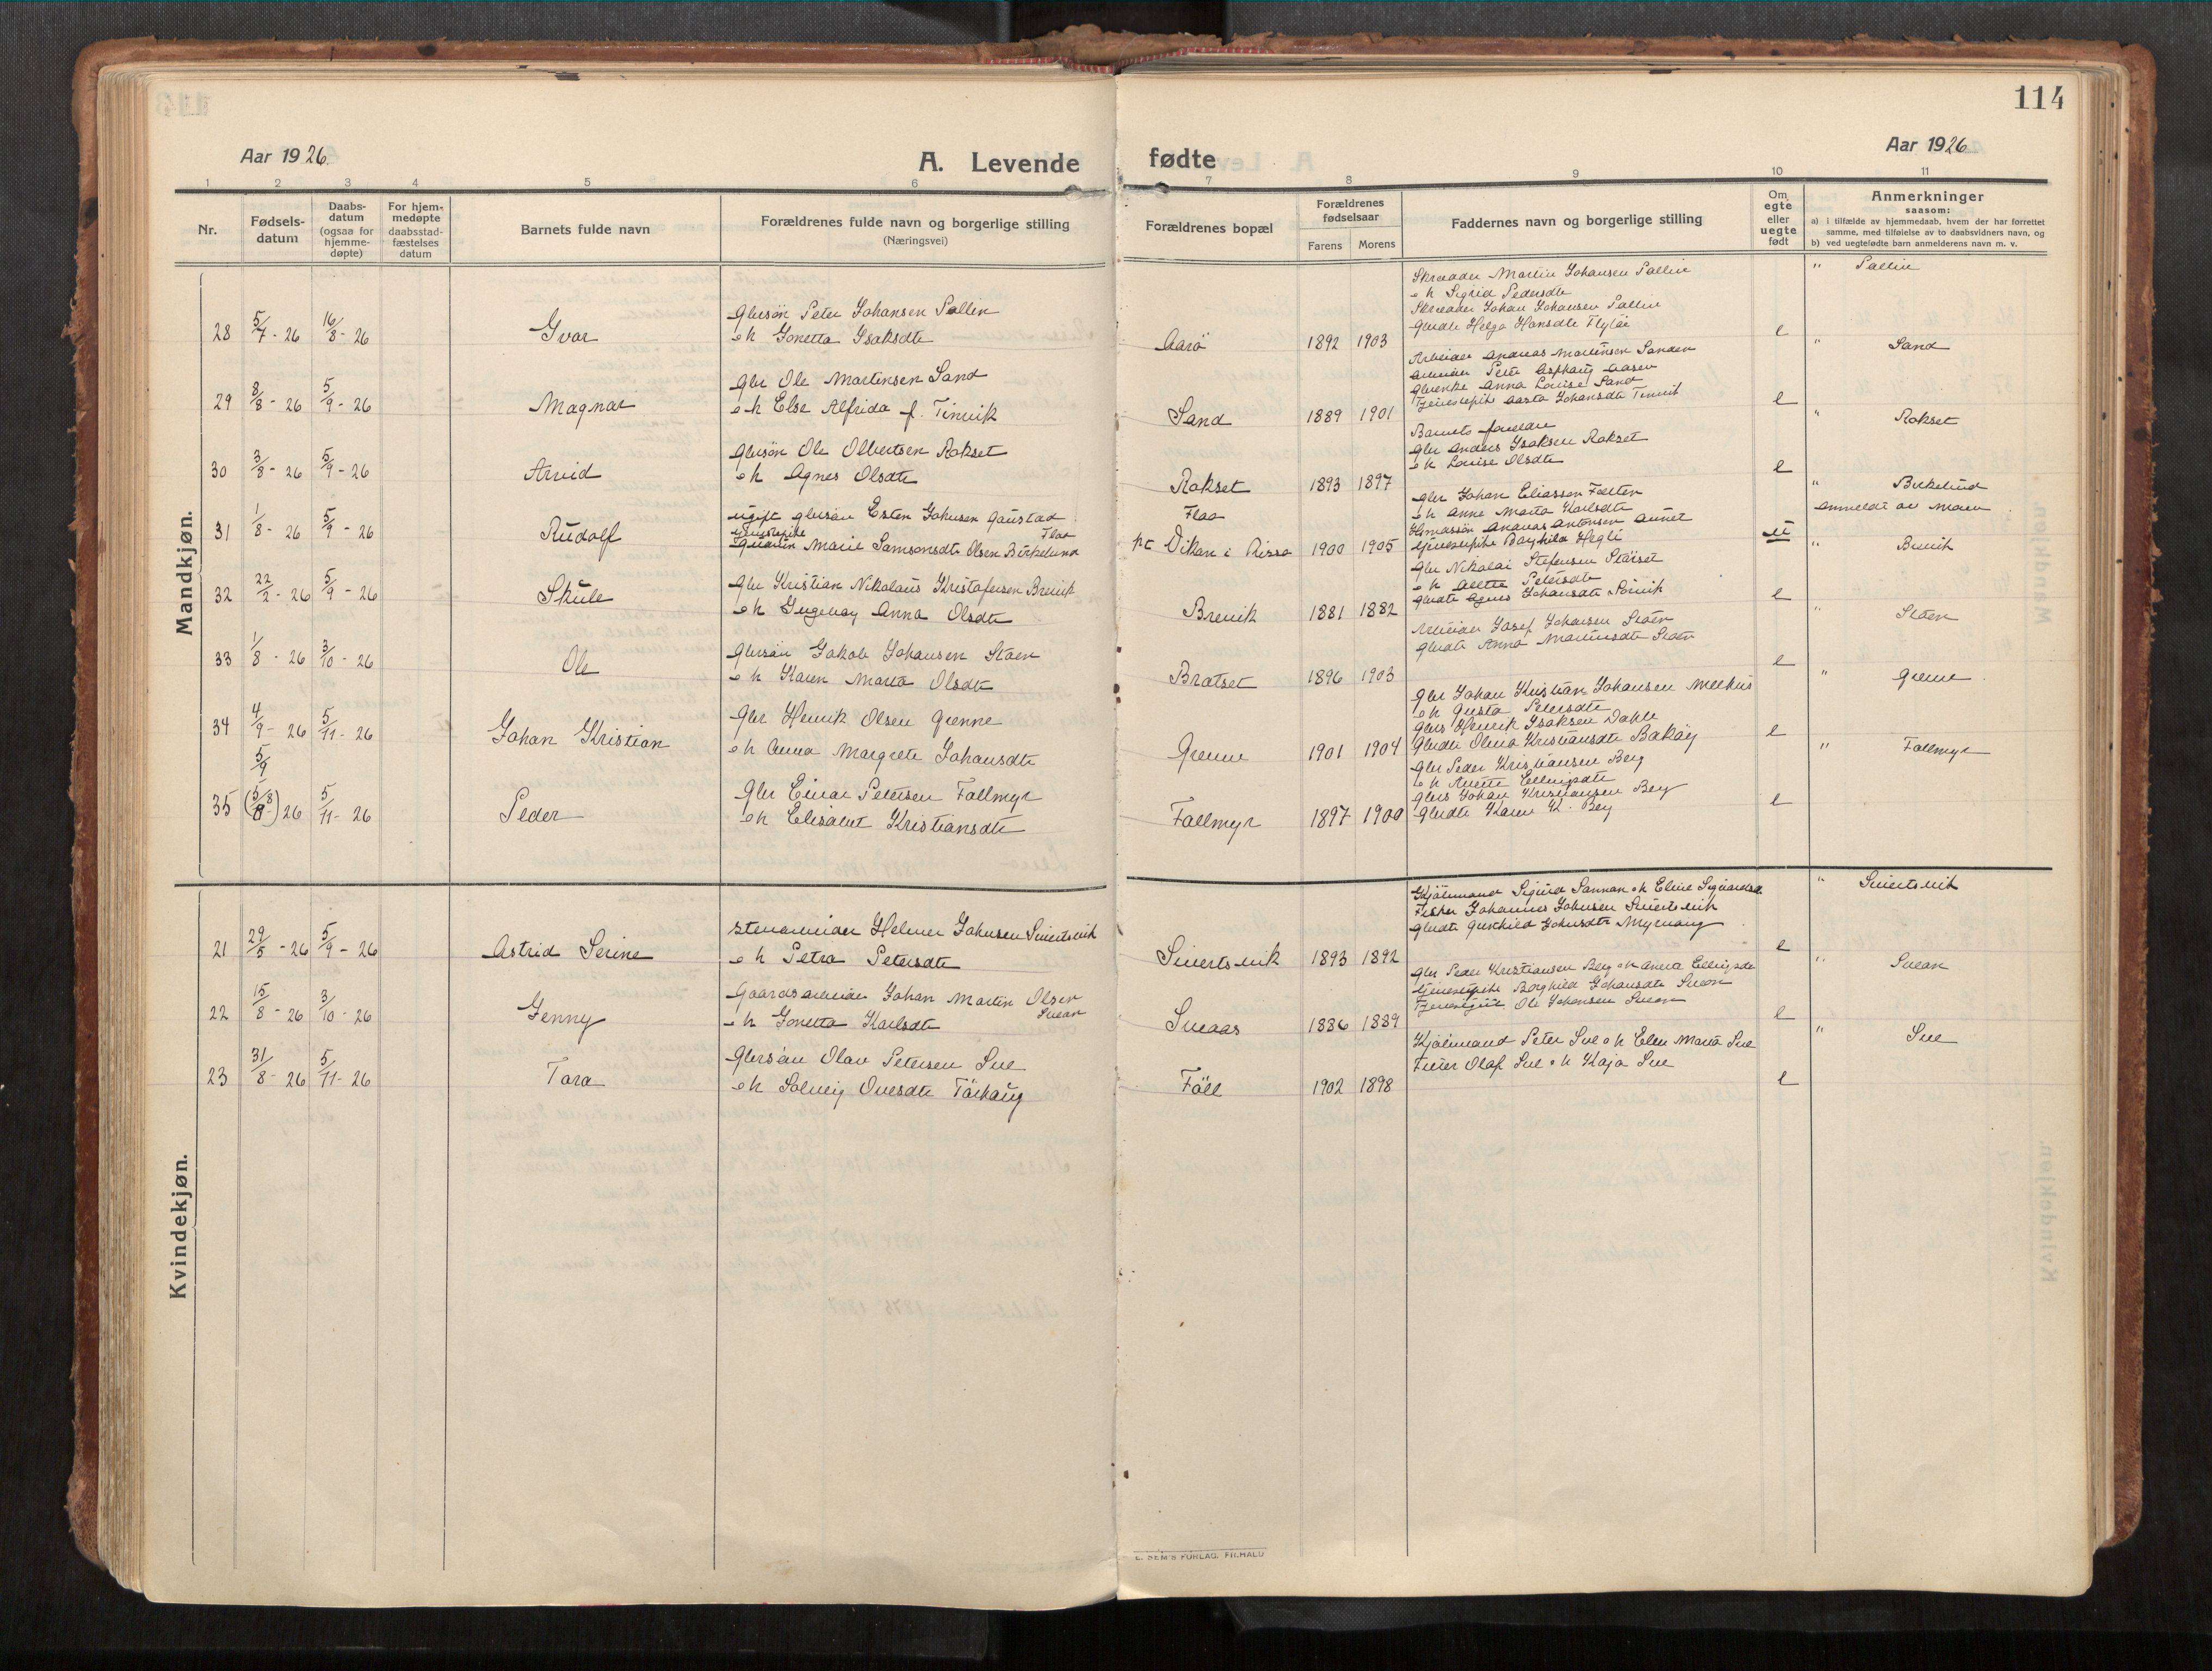 114
Aar 1926.
A. Levende
fødte
Aar 1926
1 2 3 4 5 6 7 8 9 10 11
Nr.
Fødsels-
datum
Daabs-
datum
(ogsaa for
hjemme-
døpte)
For hjem-
medøpte
daabsstad-
fæstelses
datum
Barnets fulde navn
Forældrenes fulde navn og borgerlige stilling
(Næringsvei)
Forældrenes bopæl
Forældrenes
fødselsaar
Farens Morens
Faddernes navn og borgerlige stilling
Om
egte
eller
uegte
født
Anmerkninger
saasom:
a) i tilfælde av hjemmedaab, hvem der har forrettet
samme, med tilføielse av to daabsvidners navn, og
b) ved uegtefødte barn anmelderens navn m. v.
Mandkjøn.
28 5/7 - 26 16/8 - 26 Ivar
Gbrsøn Peter Johansen Sallin
o h Jonetta Isaksdtr
Aarö 1892 1903
Skrædder Martin Johansen Sallin
o h Sigrid Pedersdtr
Skrædder Johan Johansen Sallin
Gbrdtr Helga Hansdtr
e
" Sallin
29 8/8 - 26 5/9 - 26 Magnar
Gbr Ole Martensen Sand
o h Else Alfrida f. Tinvik
Sand 1889 1901
Arbeider Andreas Martensen Sanden
Arbeider Peter Aasen
Gbrenke Anna Louise Sand
Tjenestepike Aasta Johansdtr Tinvik
e
" Sand
30 3/8 - 26 5/9 - 26 Arvid
Gbrsøn Ole Olbertsen Rokset
o h Agnes Olsdtr
Rokset 1893 1897
Barnets forældre
Gbr Anders Isaksen Rokset
o h Louise Olsdtr
e
" Rokset
31 1/8 - 26 5/9 - 26 Rudolf
ugift gbrsøn Esten Johnsen Gaustad
Flaa
Marie Samsonsdtr Olsen Birkelund
Flaa
Vikan i Rissa 1900 1905
Gbr Johan Eliassen Fætten
o h Anne Marta Karlsdtr
Andreas Antonsen Aunet
Tjenestepike Hegli
u
" Birkelund
Anmeldt av Moren
32 22/2 - 26 5/9 - 26 Skule
Gbr Kristian Nikolaus Kristofersen Brevik
o h Ingeborg Anna Olsdtr
Brevik 1881 1882
Gbr Nikolai Stefensen
o h Petersdtr
Gbrdtr Agnes Johansdtr
e
" Brevik
33 1/8 - 26 3/10 - 26 Ole
Gbrsøn Jakob Johansen Støen
o h Karen Marta Olsdtr
Bratset 1896 1903
Arbeider Josef Johansen Støen
Gbrdtr Anna Martinsdtr Støen
e
" Støen
34 4/9 - 26 5/11 - 26 Johan Kristian
Gbr Henrik Olsen Grenne
o h Anna Margrete Johansdtr
Grenne 1901 1904
Gbr Johan Kristian Johansen Melhus
o h Gusta Petersdtr
Gbrs Henrik Isaksen Dahle
Gbrdtr Olena Kristiansdtr Bakøy
e
" Grenne
35 5/9 (5/8) 26 5/11 - 26 Peder
Gbr Einar Petersen Fallmyr
o h Elisabet Kristiansdtr
Fallmyr 1897 1900
Gbr Peder Kristiansen Berg
o h Anette Ellingsdtr
Gbrs Johan Kristiansen Berg
Gbrdtr Karen K. Berg
e
" Fallmyr
Kvindekjøn.
21 29/5 - 26 5/9 - 26 Astrid Serine
Stenarbeider Helmer Johnsen Sivertsvik
o h Petra Petersdtr
Sivertsvik 1893 1892
Kjøbmand Sigurd Sannan o h Eline Sigvardsd.
Fisker Johannes Johnsen Sivertsvik
Gbrdtr Johnsdtr Myrvang
e
" Sivertsvik
22 15/8 - 26 3/10 - 26 Jenny
Gaardsarbeider Johan Martin Olsen
Svean
o h Jonetta Karlsdtr
Sneaas 1886 1889
Gbr Peder Kristiansen Berg o h Anette Ellingsdtr
Tjenestepike Borghild Johansdtr Svean
Tjenestegut Ole Johansen Svean
e
" Svean
23 31/8 - 26 5/11 - 26 Tora
Gbrsøn Olav Petersen Sve
o h Solveig Ovesdtr Törhaug
Föll 1902 1898
Kjøbmand Peter Sve o h Elen Marta Sve
Olaf Sve o h Kaja Sve
e
" Sve
E. SEM'S FORLAG, FR.HALD